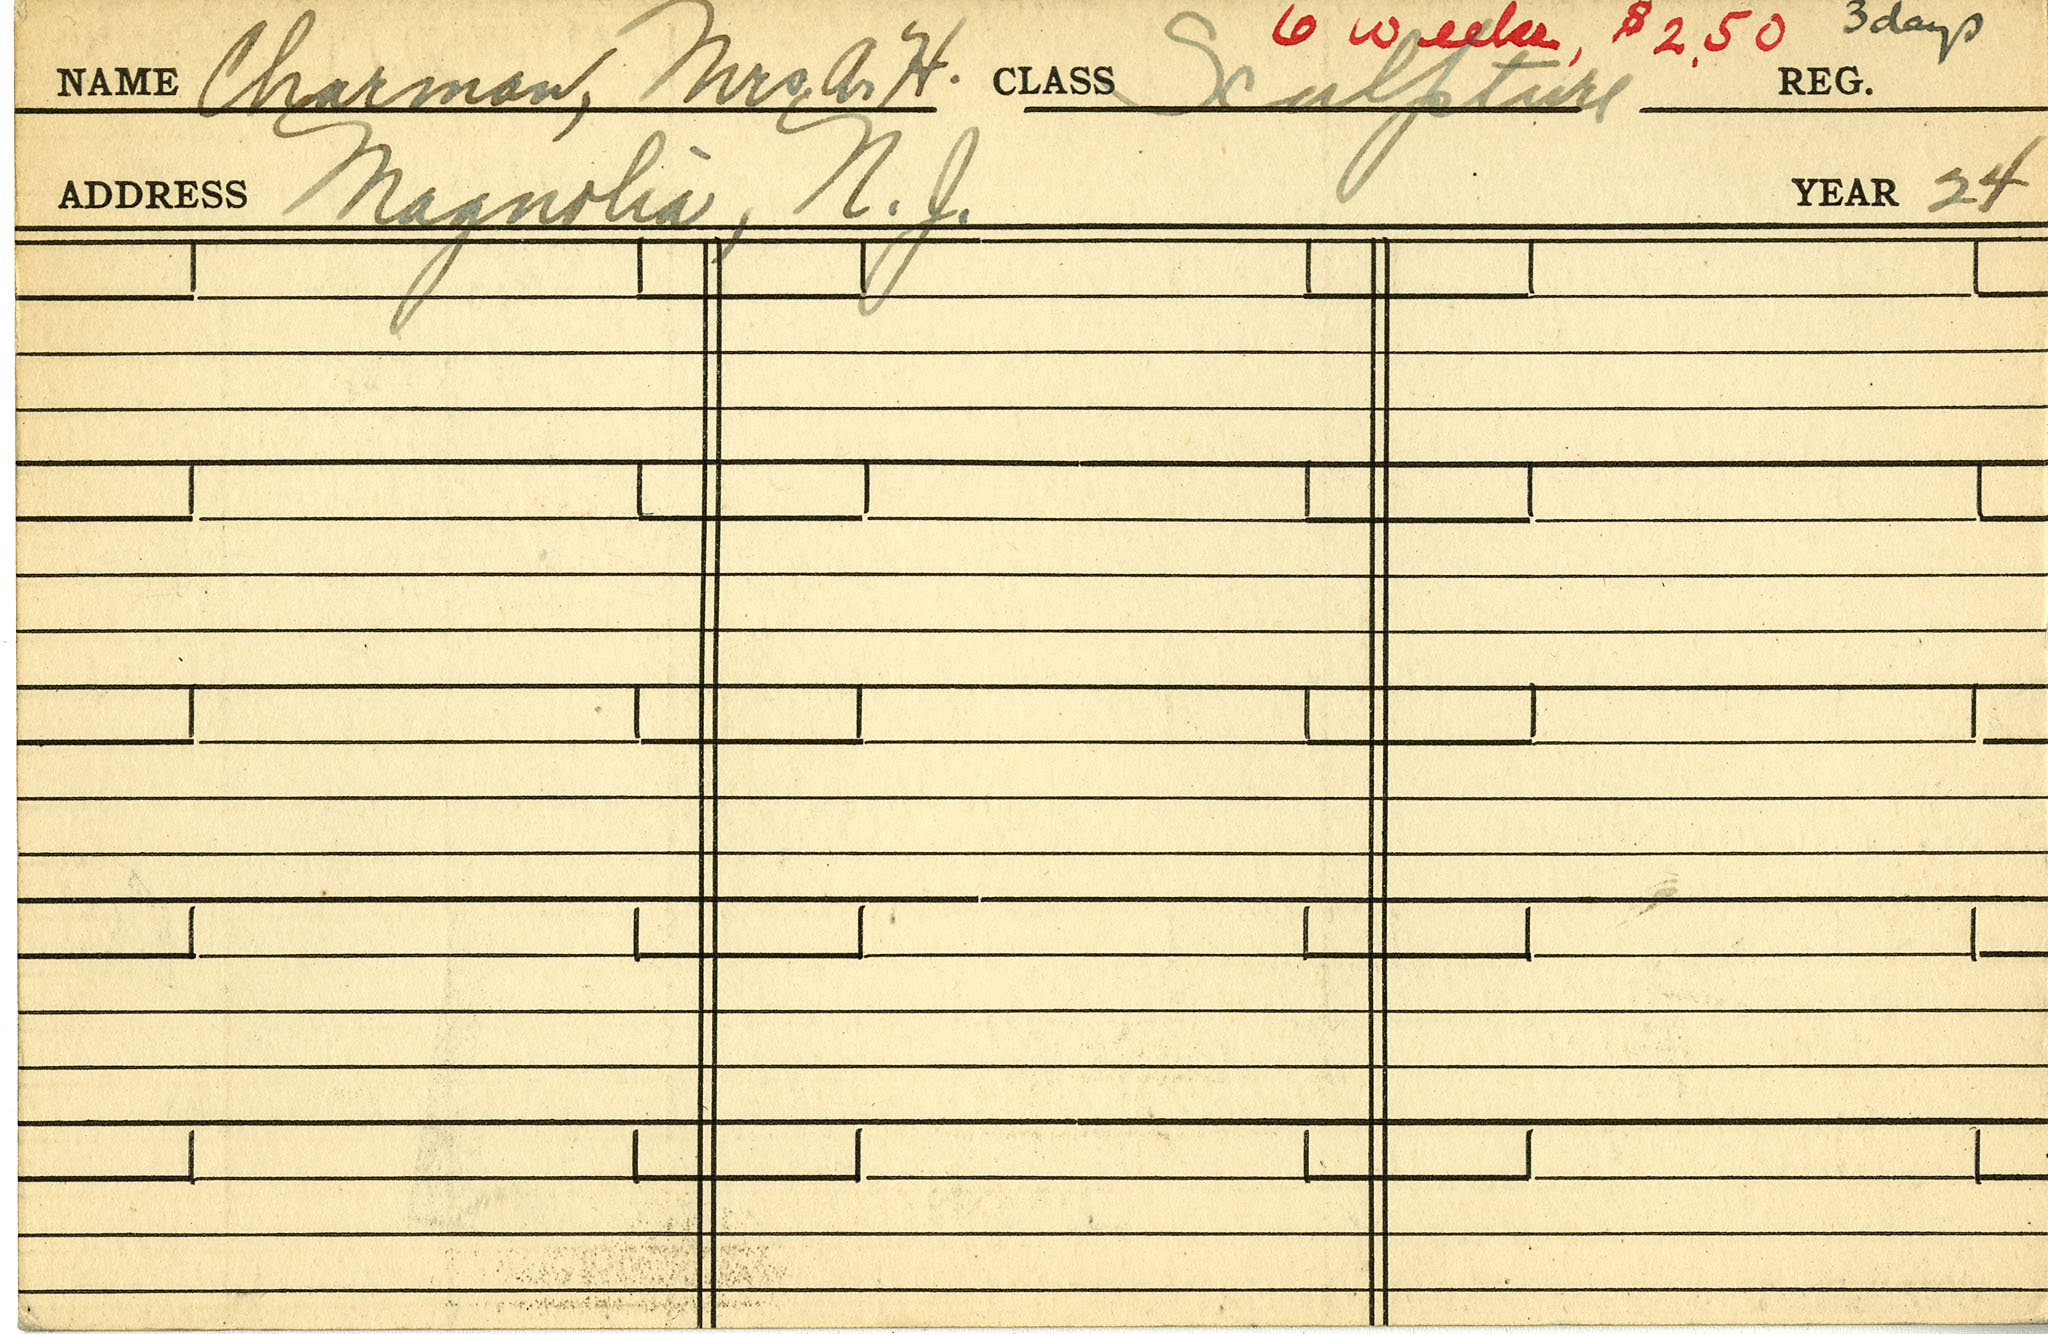 6 weeks, $2.50 3 days
NAME Charman, Mrs. A. H. CLASS Sculpture REG.
ADDRESS Magnolia, N. J. YEAR 24